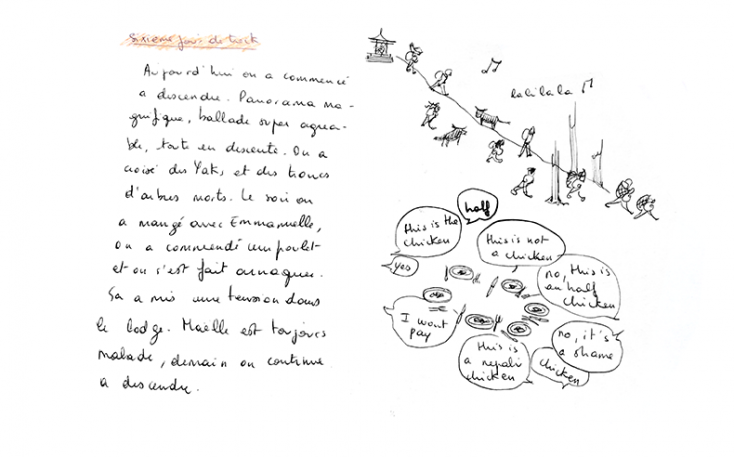 Sixième jour de trek
Aujourd'hui on a commencé
a descendre. Panorama ma-
gnifique, ballade super agréa-
ble, toute en descente. On a
croisé des Yaks, et des troncs
d'arbres morts. Le soir on
a mangé avec Emmanuelle,
on a commendé un poulet
et on s'est fait arnaquer.
Sa a mis une tension dans
le lodge. Maëlle est toujours
malade, demain on continue
a descendre.
lalilala
half
this is the
chicken
yes
this is not
a chicken
no, this is
an half
chicken
I wont
pay
this is
a nepali
chicken
no, it's
a shame
chicken